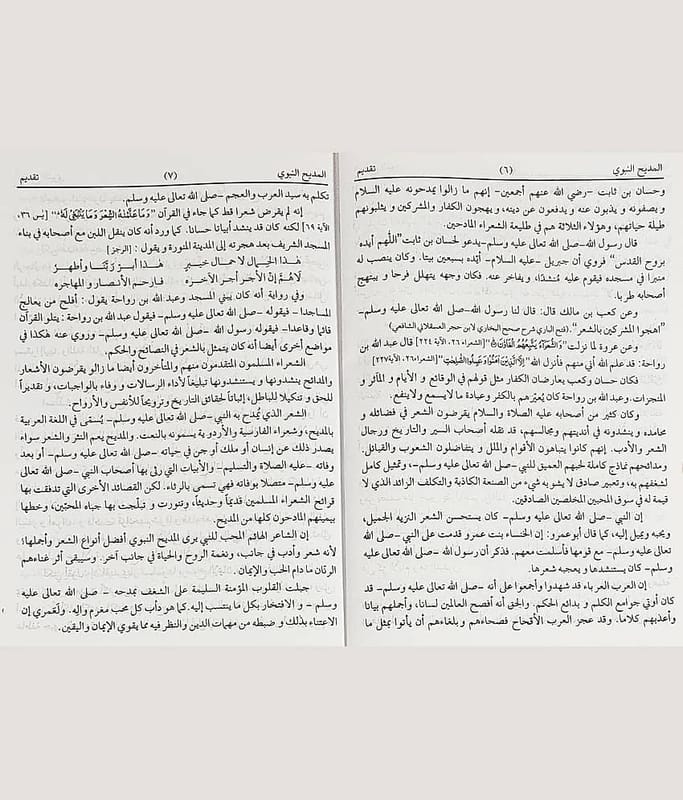 المديح النبوي (٦) تقديم
وحسان بن ثابت -رضي الله عنهم أجمعين- إنهم ما زالوا يمدحونه عليه السلام
و يصفونه و يذبون عنه و يدفعون عن دينه، و يهجون الكفار والمشركين و يثلبونهم
طيلة حياتهم، وهؤلاء الثلاثة هم في طليعة الشعراء المادحين.
قال رسول الله -صلى الله تعالى عليه وسلم- يدعو لحسان بن ثابت "اللّهم أيده
بروح القدس" فروي أن جبريل -عليه السلام- أيّده بسبعين بيتا. وكان ينصب له
منبرا في مسجده فيقوم عليه مُنشدًا، و يفاخر عنه. فكان وجهه يتهلل فرحا و يبتهج
أصحابه طربا.
وعن كعب بن مالك قال: قال لنا رسول الله -صلى الله تعالى عليه وسلم-
"اهجوا المشركين بالشعر". (فتح الباري شرح صحيح البخاري لابن حجر العسقلاني الشافعي)
وعن عروة لما نزلت "وَالشُّعَرَآءُ يَتَّبِعُهُمُ الْغَاوٗنَ" [الشعراء ٢٦، الآية ٢٢٤] قال عبد الله بن
رواحة: قد علم الله أني منهم فأنزل الله "إِلَّا الَّذِيْنَ اٰمَنُوْا وَعَمِلُوا الصّٰلِحٰتِ" [الشعراء ٢٦، الآية ٢٢٧]
فكان حسان وكعب يعارضان الكفار مثل قولهم في الوقائع و الأيام و المآثر و
المنجزات. وعبد الله بن رواحة كان يُعيّرهم بالكفر وعبادة ما لا يسمع ولا ينفع.
وكان كثير من أصحابه عليه الصلاة والسلام يقرضون الشعر في فضائله و
محامده و ينشدونه في أنديتهم ومجالسهم، قد نقله أصحاب السير والتاريخ ورجال
الشعر والأدب. إنهم كانوا يتباهون الأقوام والملل و يتفاضلون الشعوب والقبائل.
و مدائحهم نماذج كاملة لحبهم العميق للنبي -صلى الله تعالى عليه وسلم-، وتمثيل كامل
لشغفهم به، وتعبير صادق لا يشوبه شيء من الصنعة الكاذبة والتكلف الزائد الذي لا
قيمة له في سوق المحبين المخلصين الصادقين.
إن النبي -صلى الله تعالى عليه وسلم- كان يستحسن الشعر النزيه الجميل،
ويحبه ويميل إليه، كما قال أبو عمرو: إن الخنساء بنت عمرو قدمت على النبي -صلى الله
تعالى عليه وسلم- مع قومها فأسلمت معهم. فذكر أن رسول الله -صلى الله تعالى عليه
وسلم- كان يستنشدها و يعجبه شعرها.
إن العرب العرباء قد شهدوا وأجمعوا على أنه -صلى الله تعالى عليه وسلم- قد
كان أوتي جوامع الكلم و بدائع الحكم. والحق أنه أفصح العالمين لسانا، وأجملهم بيانا
وأعذبهم كلاما. وقد عجز العرب الأقحاح فصحاءهم و بلغاءهم أن يأتوا بمثل ما
المديح النبوي (٧) تقديم
تكلم به سيد العرب والعجم -صلى الله تعالى عليه وسلم.
إنه لم يقرض شعرا قط كما جاء في القرآن "وَمَا عَلَّمْنٰهُ الشِّعْرَ وَمَا يَنْۢبَغِيْ لَهٗ" [يس ٣٦،
الآية ٦٩] لكنه كان قد ينشد أبياتا حسانا. كما ورد أنه كان ينقل اللبن مع أصحابه في بناء
المسجد الشريف بعد هجرته إلى المدينة المنورة و يقول: [الرجز]
هٰذا الحِمال لا حِمال خيبر هٰذا أبرّ ربّنا وأطهر
لاهُمّ إنّ الأجر أجر الآخره فارحم الأنصار و المهاجره
وفي رواية أنه كان يبني المسجد وعبد الله بن رواحة يقول: أفلح من يعالج
المساجدا- فيقوله -صلى الله تعالى عليه وسلم- فيقول عبد الله بن رواحة: يتلو القرآن
قائما وقاعدا- فيقوله رسول الله -صلى الله تعالى عليه وسلم- وروي عنه هكذا في
مواضع أخرى أيضا أنه كان يتمثل بالشعر في النصائح والحكم.
الشعراء المسلمون المتقدمون منهم والمتأخرون أيضا ما زالو يقرضون الأشعار
والمدائح ينشدونها و يستنشدونها تبليغاً لأداء الرسالات و وفاء بالواجبات، و تقديراً
للحق و تنكيلا للباطل، إثباتاً لحقائق التاريخ وترويحاً للأنفس والأرواح.
الشعر الذي يُمدَح به النبي -صلى الله تعالى عليه وسلم- يُسمى في اللغة العربية
بالمديح، وشعراء الفارسية والأردوية يسمونه بالنعت. والمديح يعم النثر والشعر سواء
يصدر ذلك عن إنسان أو ملك أو جن في حياته -صلى الله تعالى عليه وسلم- أو بعد
وفاته -عليه الصلاة والتسليم- والأبيات التي رثى بها أصحاب النبي -صلى الله تعالى
عليه وسلم- متصلا بوفاته فهي تسمى بالرثاء. لكن القصائد الأخرى التي تدفقت بها
قرائح الشعراء المسلمين قديمًا وحديثا، وتنورت و تبلّجت بها جباه المحبّين، وخطها
بيمينهم المادحون كلها من المديح.
إن الشاعر الهائم المحب للنبي يرى المديح النبوي أفضل أنواع الشعر وأجملها؛
لأنه شعر وأدب في جانب، ونغمة الروح والحياة في جانب آخر. وسيبقى أثر غناءهم
الرنّان ما دام الحب والإيمان.
جبلت القلوب المؤمنة السليمة على الشغف بمدحه - صلى الله تعالى عليه
وسلم - و الافتخار بكل ما ينتسب إليه. كما هو دأب كل محب مغرم واله. ولعمري إن
الاعتناء بذلك و ضبطه من مهمات الدين والنظر فيه مما يقوي الإيمان و اليقين.